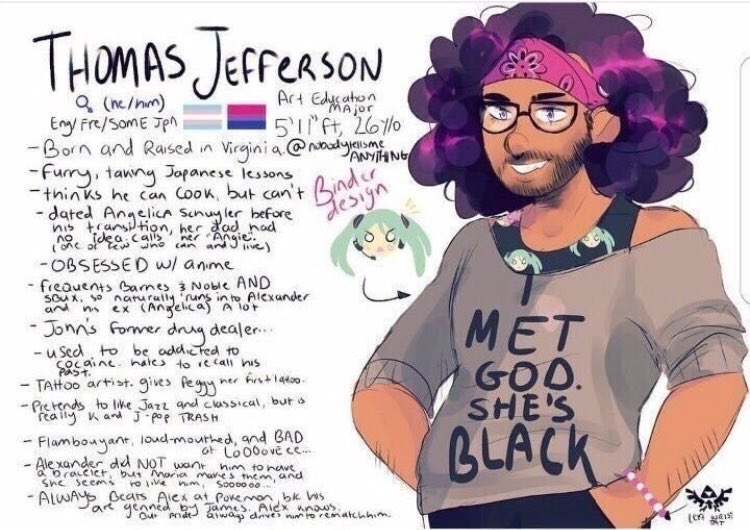 THOMAS JEFFERSON
(he/him)
Eng/Fre/SomE Jpn
Art Education
MAjor
5'11"ft, 26y/o
@nobodytellsme
ANYTHING
- Born and Raised in Virginia.
- furry, taking Japanese lessons
- thinks he can cook, but can't
- dated Angelica Schuyler before
his transition, her dad had
no idea. calls her "Angie".
(one of few who can and live)
- OBSESSED w/ anime
- frequents Barnes & Noble AND
SBUX, so naturally runs into Alexander
and his ex (Angelica) A lot
- John's former drug dealer...
- used to be addicted to
cocaine. hates to recall his
past.
- TAttoo artist. gives Peggy her first tattoo.
- Pretends to like Jazz and classical, but is
really K and J-pop TRASH
- Flambouyant, loud-mouthed, and BAD
at LoOOovE cc...
- Alexander did NOT want him to have
a bracelet, but Maria makes them, and
she seems to like him, Sooooo...
- AlWAYs Beats Alex at Pokemon, b/c his
are genned by James. Alex knows,
but pride always drives him to rematch him.
Binder
design
I
MET
GOD.
SHE'S
BLACK
LEFT WRIST
TAT